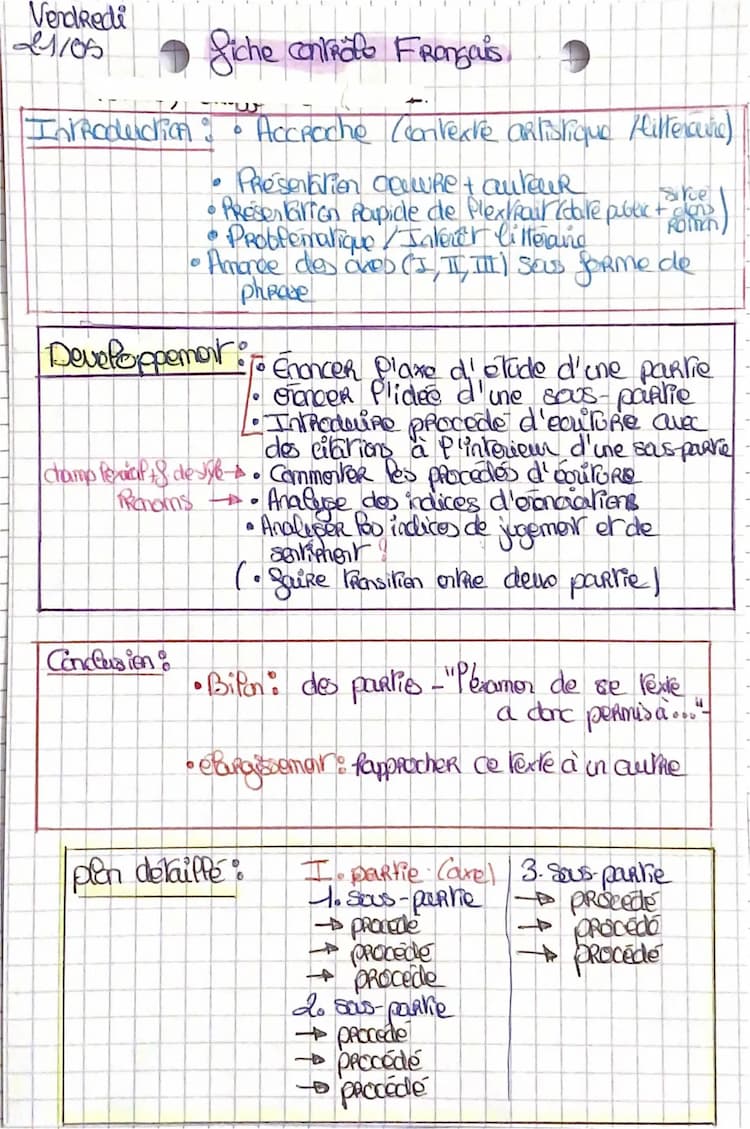 Vendredi
21/05
fiche contrôle Français
Introduction : • Accroche (contexte artistique / littéraire)
• Présentation oeuvre + auteur
• Présentation rapide de l'extrait (date public + situé dans roman)
• Problématique / Intérêt littéraire
• Annonce des axes (I, II, III) sous forme de
phrase
Developpement : • Énoncer l'axe d'étude d'une partie
• énoncer l'idée d'une sous-partie
• Introduire procédé d'écriture avec
des citations à l'intérieur d'une sous-partie
champ lexical + f de style → • Commenter les procédés d'écriture
Pronoms → • Analyse des indices d'énonciations
• Analyser les indices de jugement et de
sentiment !
(• faire transition entre deux partie)
Conclusion :
• Bilan : des parties - "L'examen de se texte
a donc permis à..."-
• élargissement : rapprocher ce texte à un autre
plan détaillé :
I. partie (axe)
1. sous-partie
→ procédé
→ procédé
→ procédé
2. sous-partie
→ procédé
→ procédé
→ procédé
3. sous-partie
→ procédé
→ procédé
→ procédé